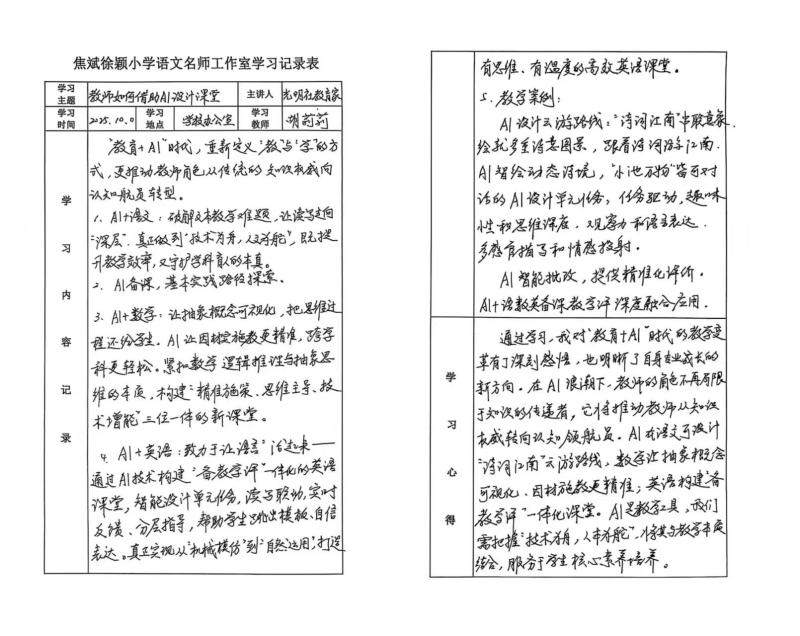 焦斌徐颖小学语文名师工作室学习记录表
学习主题 教师如何借助AI设计课堂 主讲人 光明社教育家
学习时间 2025.10.0 学习地点 学校办公室 学习教师 胡莉莉
学习内容记录
“教育+AI”时代，重新定义“教”与“学”的方
式，更推动教师角色从传统的知识权威向
认知航员转型。
1、AI+语文：破解文本教学难题，让读写走向
“深层”，真正做到“技术为舟，人文为舵”，既提
升教学效率，又守护学科育人的本真。
2、AI备课，基本实践路径探索。
3、AI+数学：让抽象概念可视化，把思维过
程还给学生。AI让因材施教更精准，跨学
科更轻松。紧扣数学逻辑推理与抽象思
维的本质，构建“精准施策、思维主导、技
术增能”三位一体的新课堂。
4、AI+英语：致力于让语言“活起来——
通过AI技术构建“备教学评”一体化的英语
课堂，智能设计单元任务，读写联动，实时
反馈、分层指导，帮助学生跳出模板、自信
表达。真正实现从“机械模仿”到“自然运用”，打造
有思维、有温度的高效英语课堂。
5、教学案例：
AI设计云游路线：“诗词江南”串联意象，
绘就多重诗意图景，跟着诗词游江南.
AI智绘动态诗境，“小池万物”皆可对
话的AI设计单元任务，任务驱动，趣味
性和思维深度，观察力和语言表达.
多感官描写和情感投射.
AI智能批改，提供精准化评价.
AI+语数英备课教学评深度融合应用.
学习心得
通过学习，我对“教育+AI”时代的教学变
革有了深刻感悟，也明晰了自身专业成长的
新方向。在AI浪潮下，教师的角色不再局限
于知识的传递者，它将推动教师从知识
权威转向认知领航员。AI在语文可设计
“诗词江南”云游路线，数学让抽象概念
可视化、因材施教更精准；英语构建“备
教学评”一体化课堂。AI是教学工具，我们
需把握“技术为舟，人本为舵”，将其与教学本质
结合，服务于学生核心素养培养。